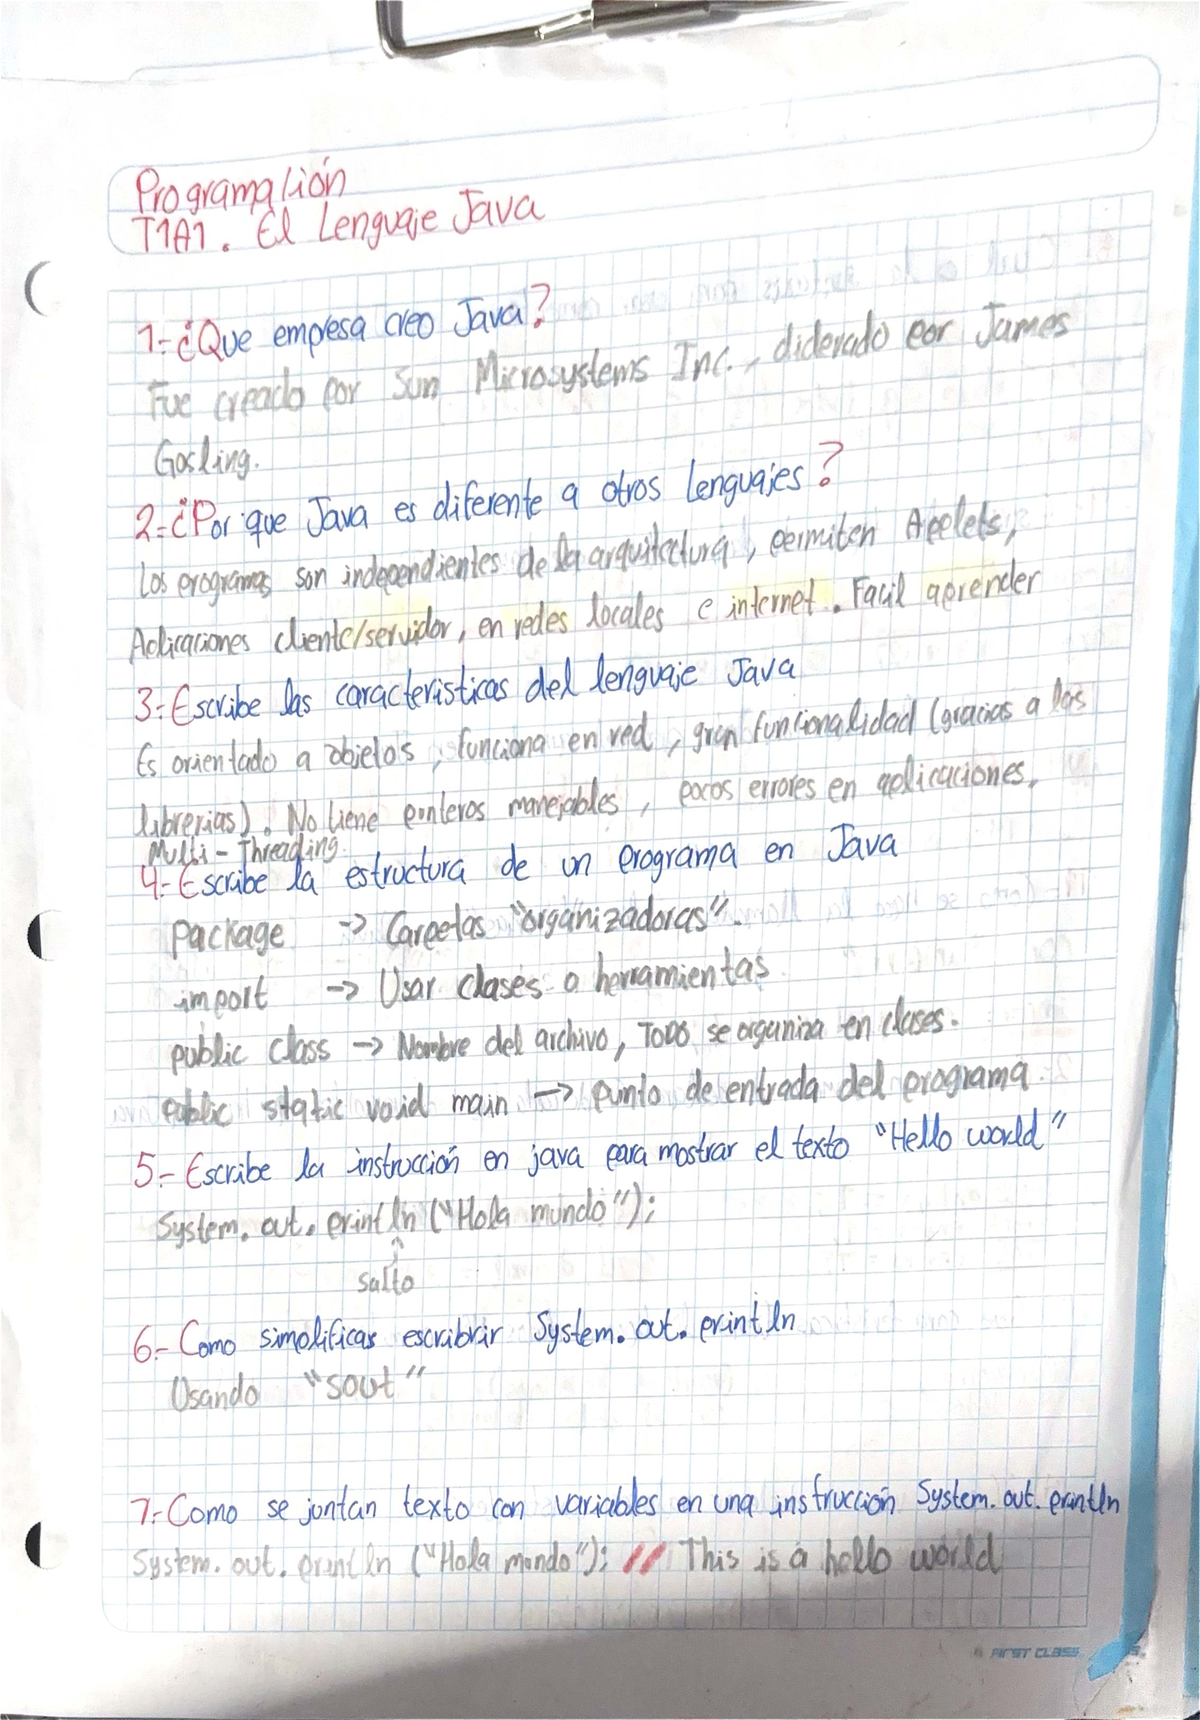 Programación
T1A1. El Lenguaje Java
1.- ¿Que empresa creo Java?
Fue creado por Sun Microsystems Inc., diderado por James
Gosling.
2.- ¿Por que Java es diferente a otros lenguajes?
Los programas son independientes de la arquitectura, permiten Applets,
Aplicaciones cliente/servidor, en redes locales e internet. Facil aprender
3.- Escribe las caracteristicas del lenguaje Java
Es orientado a objetos, funciona en red, gran funcionalidad (gracias a las
librerias). No tiene punteros manejables, pocos errores en aplicaciones,
Multi-Threading.
4.- Escribe la estructura de un programa en Java
package -> Carpetas "organizadoras".
import -> Usar clases o herramientas
public class -> Nombre del archivo, TODO se organiza en clases.
public static void main -> punto de entrada del programa.
5.- Escribe la instrucción en java para mostrar el texto "Hello world"
System.out.println ("Hola mundo");
^
salto
6.- Como simplificas escribrir System.out.println
Usando "sout"
7.- Como se juntan texto con variables en una instrucción System.out.println
System.out.println ("Hola mundo"); // This is a hello world
FIRST CLASS